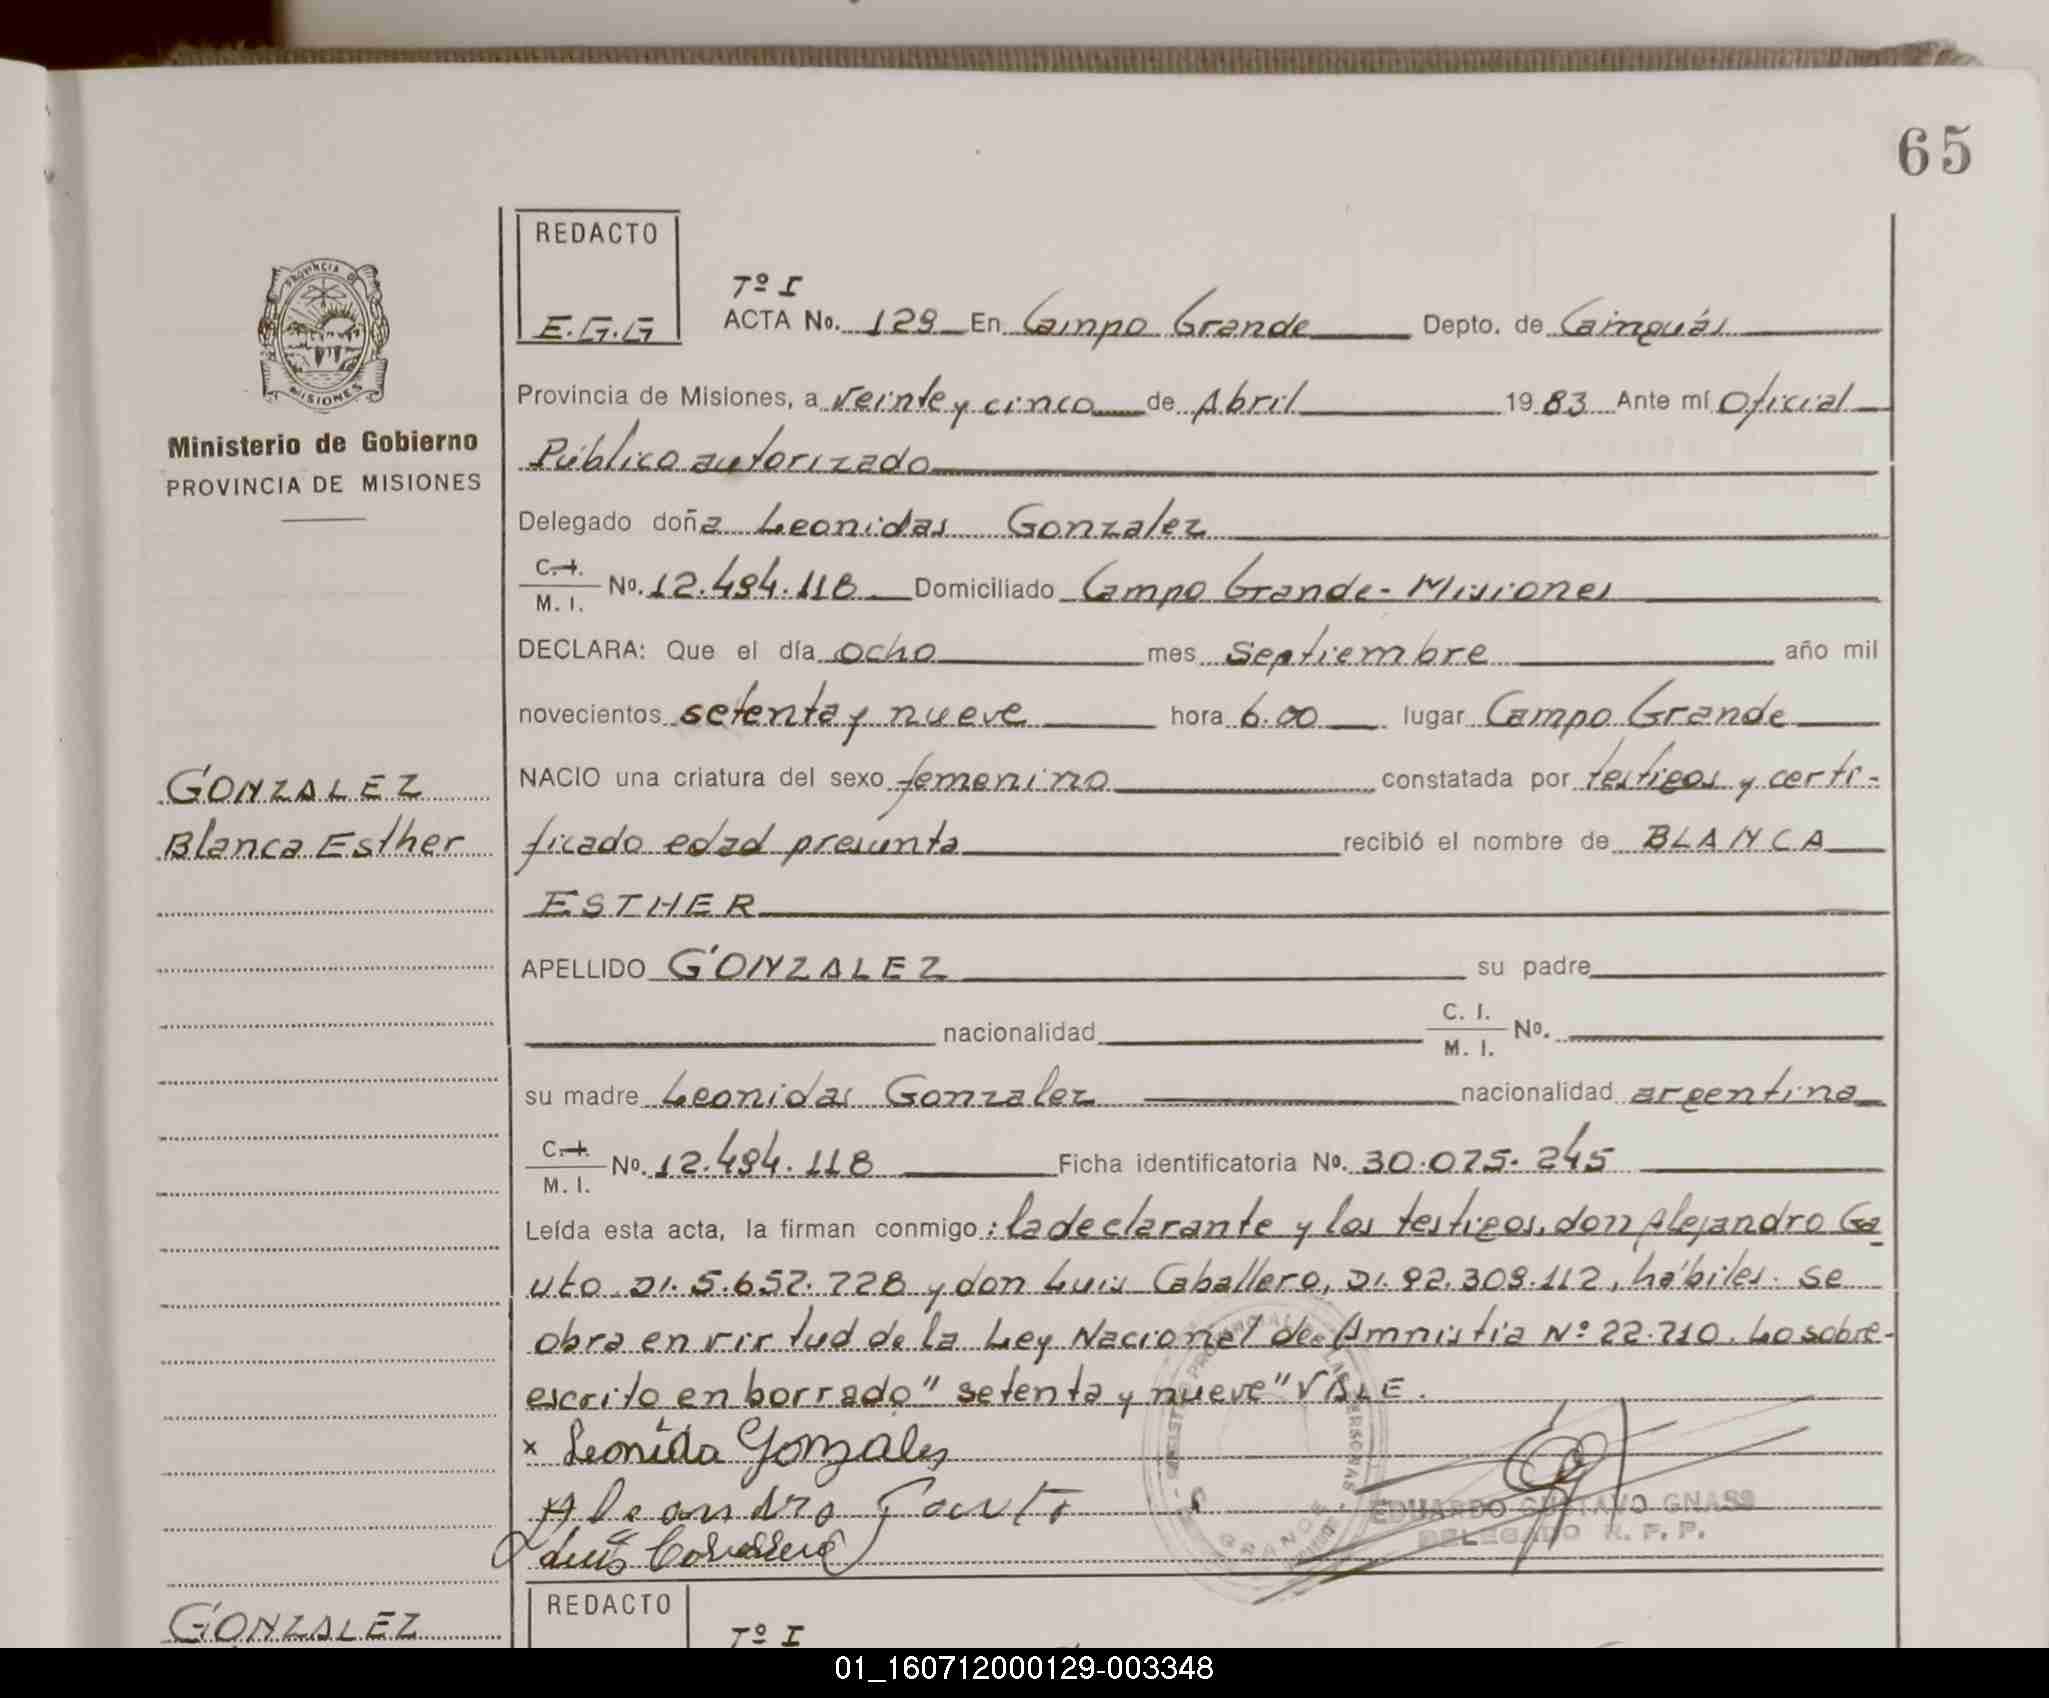 65
REDACTO
E.G.G
Tº I
ACTA No. 129 En Campo Grande Depto. de Cainguás
Provincia de Misiones, a veinte y cinco de Abril 1983 Ante mí Oficial
Público autorizado
Delegado doña Leonidas Gonzalez
C.I. M. I. No. 12.494.118 Domiciliado Campo Grande - Misiones
DECLARA: Que el día ocho mes septiembre año mil
novecientos setenta y nueve hora 6.00 lugar Campo Grande
NACIO una criatura del sexo femenino constatada por testigos y certi-
ficado edad presunta recibió el nombre de BLANCA
ESTHER
APELLIDO GONZALEZ su padre
nacionalidad C. I. M. I. No.
su madre Leonidas Gonzalez nacionalidad argentina
C.I. M. I. No. 12.494.118 Ficha identificatoria No. 30.075.245
Leída esta acta, la firman conmigo: la declarante y los testigos, don Alejandro Ga
uto DI. 5.657.728 y don Luis Caballero, DI. 92.309.112, hábiles. Se
obra en virtud de la Ley Nacional de Amnistia Nº 22.710. Lo sobre-
escrito en borrado "setenta y nueve" VALE.
x Leonida Gonzales
Aleandro Gauto
Luis Caballero
EDUARDO GUSTAVO GNASS
DELEGADO R. P. P.
PROVINCIA DE
MISIONES
Ministerio de Gobierno
PROVINCIA DE MISIONES
GONZALEZ
Blanca Esther
GONZALEZ
REDACTO
Tº I
01_160712000129-003348